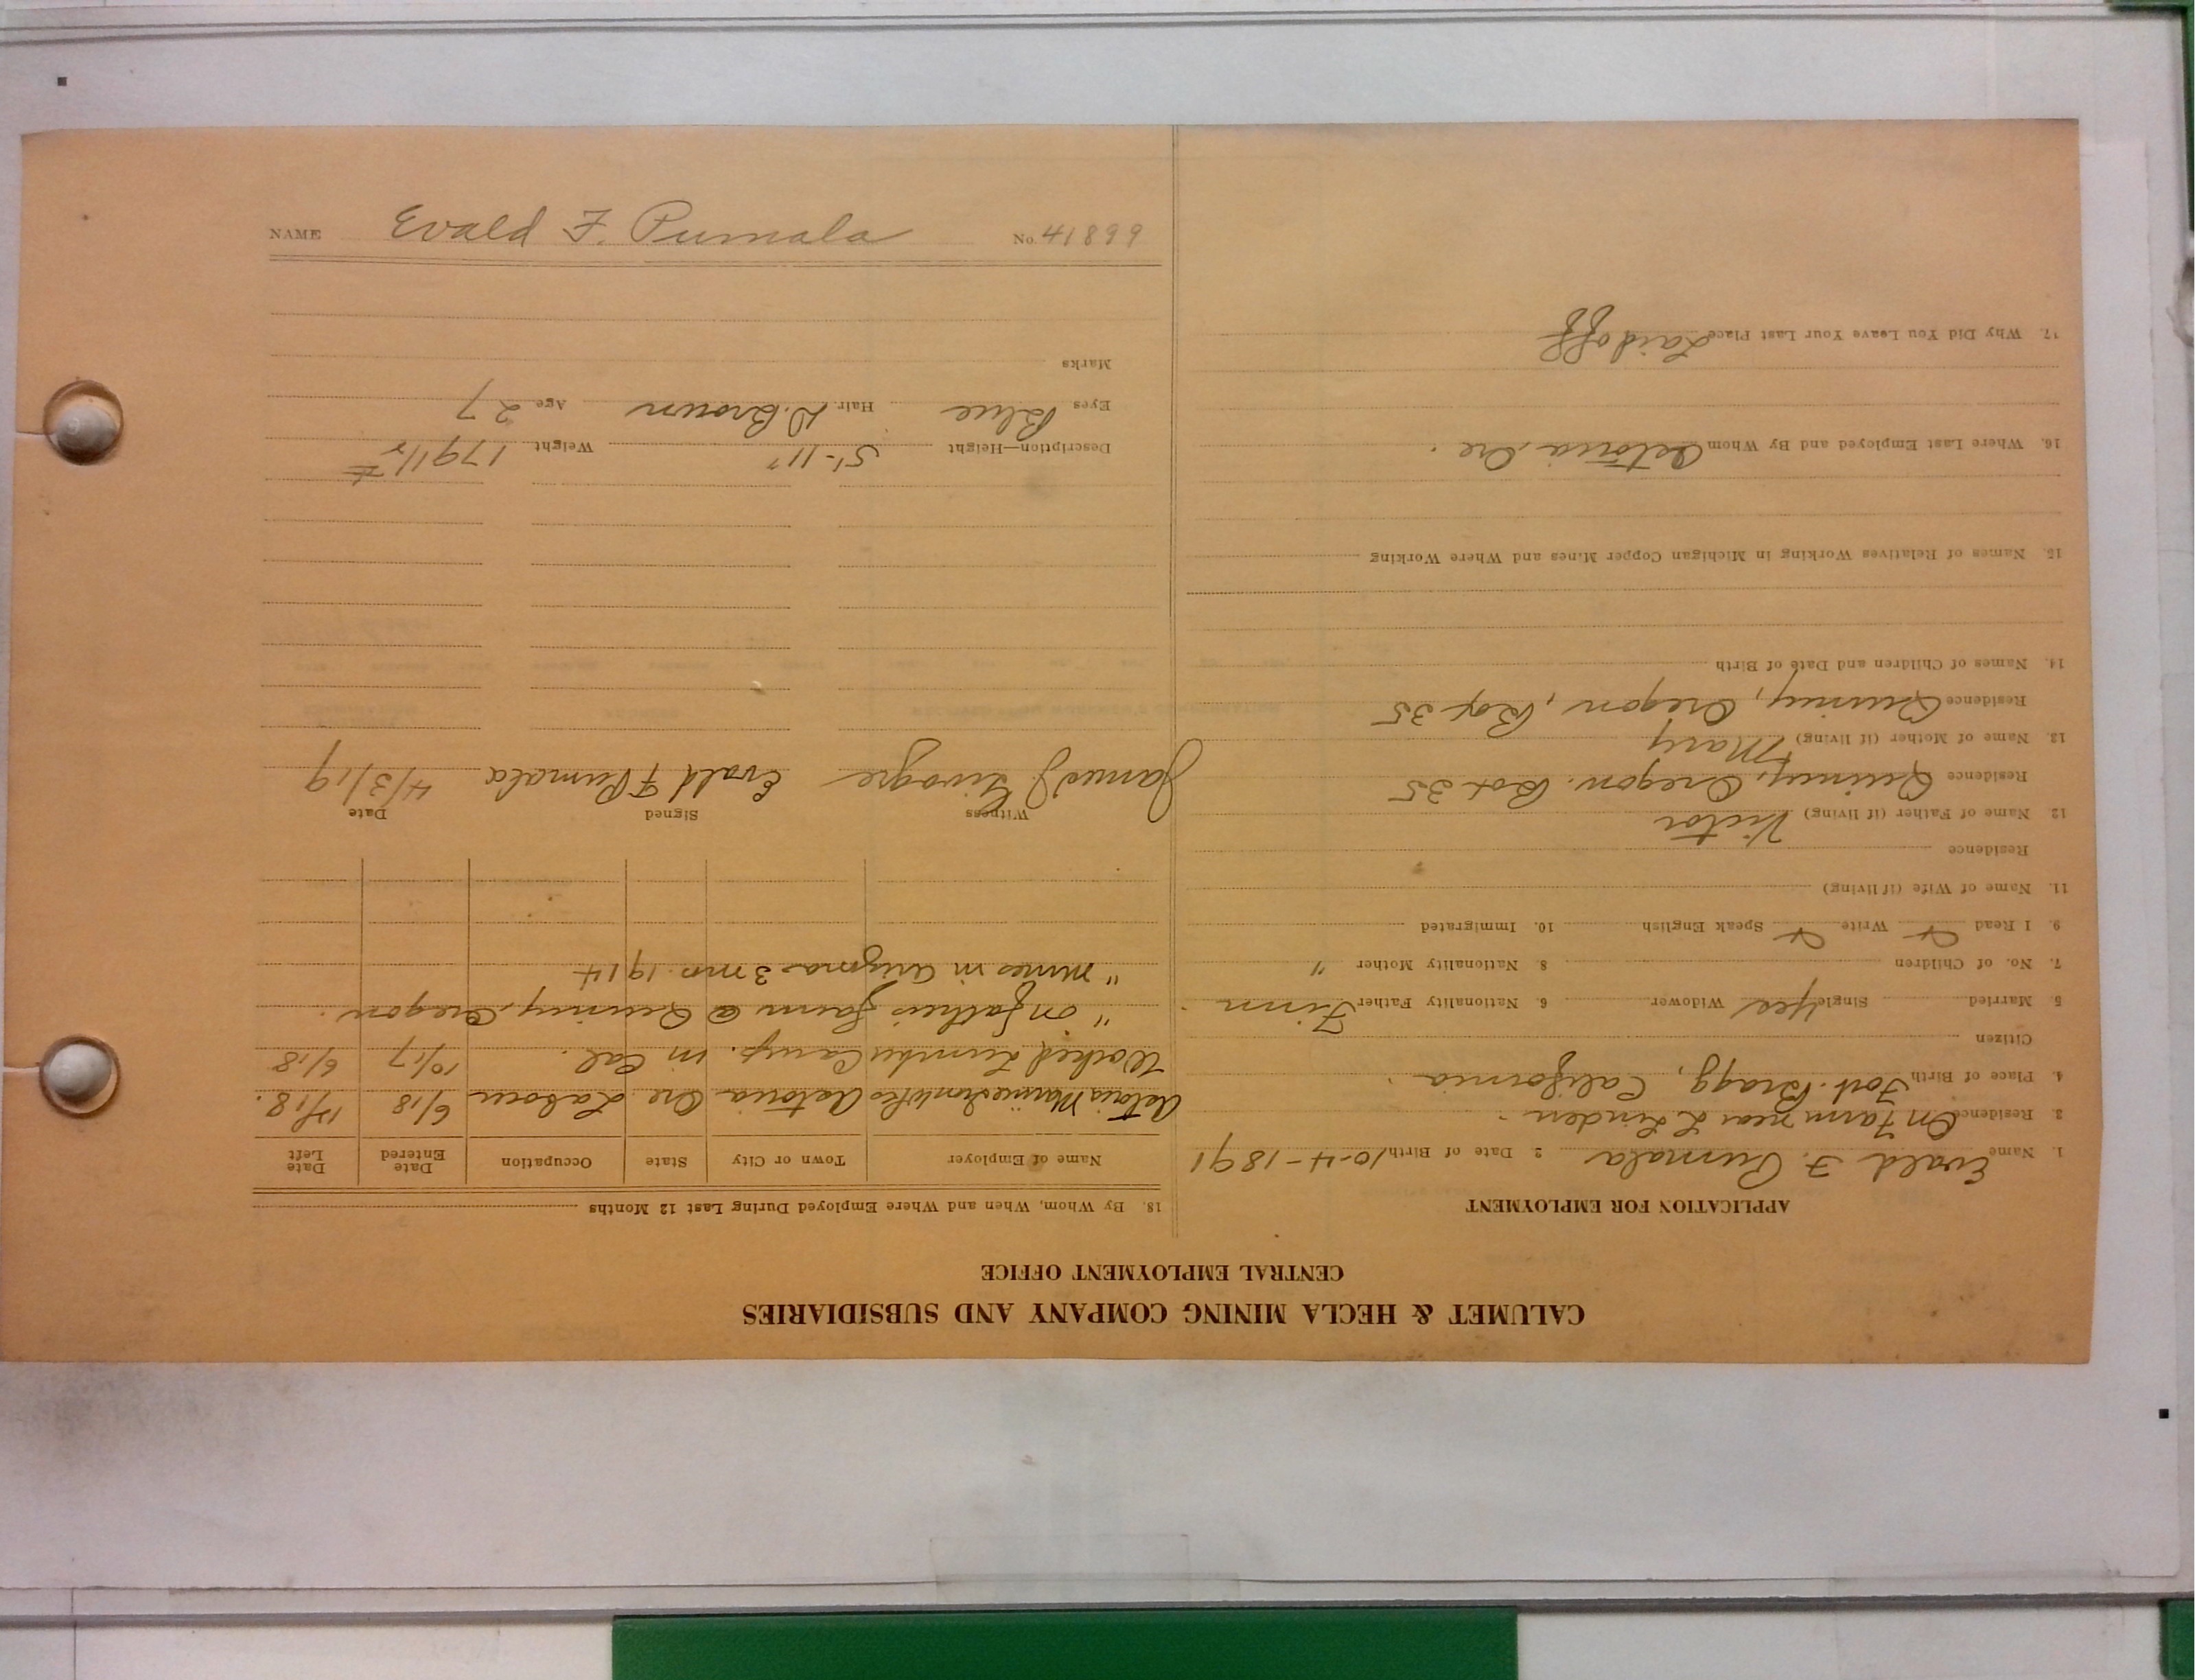 CALUMET & HECLA MINING COMPANY AND SUBSIDIARIES
CENTRAL EMPLOYMENT OFFICE
APPLICATION FOR EMPLOYMENT
1. Name Evald F. Pumala 2 Date of Birth 10-4-1891
3 Residence On Farm near L Linden.
4. Place of Birth Fort Bragg, California.
Citizen
5. Married Single Yes Widower 6. Nationality Father Finn
7. No. of Children 8. Nationality Mother "
9. I Read Write Speak English 10. Immigrated
11. Name of Wife (if living)
Residence
12 Name of Father (if living) Victor
Residence Quincy, Oregon. Box 35
13. Name of Mother (if living) Mary
Residence Quincy, Oregon, Box 35
14. Names of Children and Date of Birth
15. Names of Relatives Working in Michigan Copper Mines and Where Working
16. Where Last Employed and By Whom Astoria Ore.
17. Why Did You Leave Your Last Place Laid off
18. By Whom, When and Where Employed During Last 12 Months
Name of Employer Town or City State Occupation Date Entered Date Left
Astoria Marine Iron Wks Astoria Ore Laborer 6/18 12/18.
Worked Lumber Camp. in Cal. 10/17 6/18
" on fathers farm @ Quincy, Oregon.
" mines in Arizona 3 mo. 1914
Witness Signed Date
James J Evald F Pumala 4/3/19
Description—Height 5'-11" Weight 179 1/2 #
Eyes Blue Hair D. Brown Age 27
Marks
NAME Evald F. Pumala No. 41899